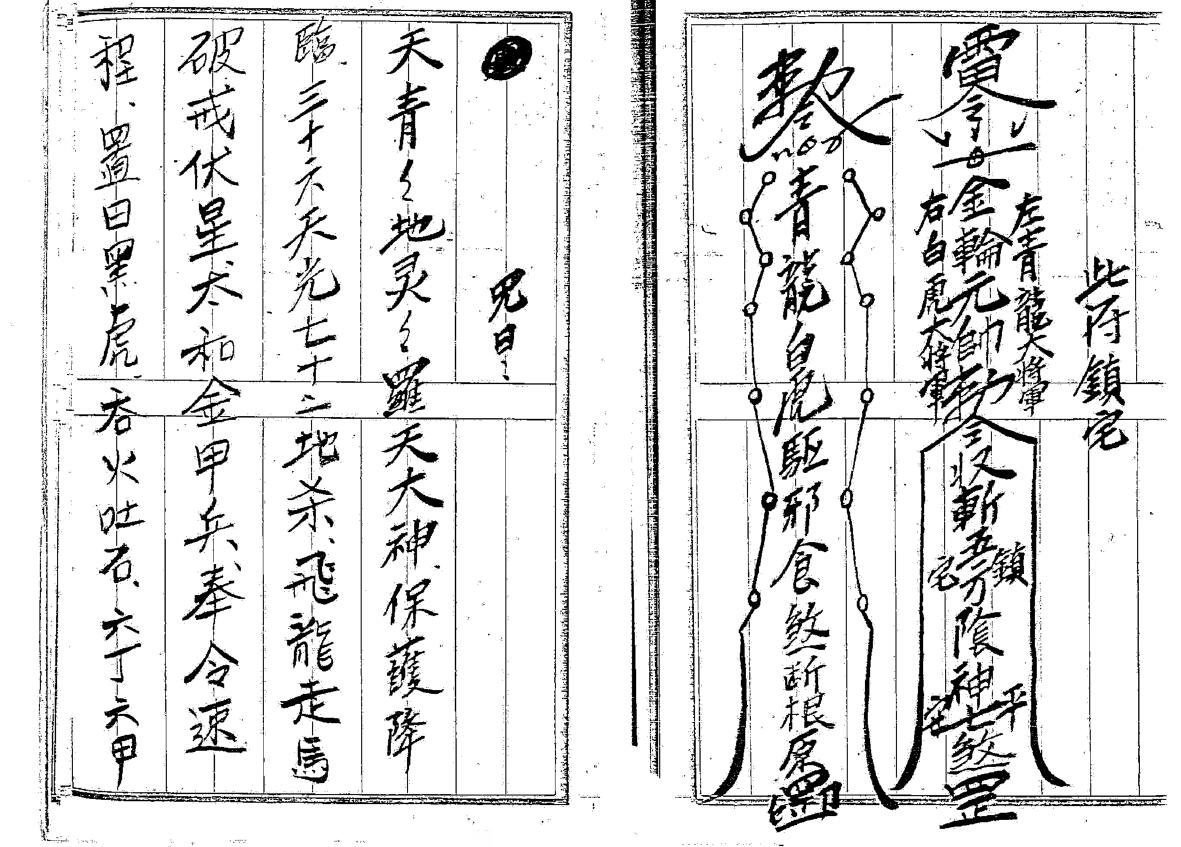 此府鎮宅
左青龍大將軍
雷令 金輪元帥勅令收斬五方陰神七煞罡
右白虎大將軍
鎮宅
平宅
勅令 青龍白虎駆邪食煞断根原罡印
咒曰：
天青々地灵々羅天大神、保護降
臨、三十六天光七十二地杀、飛龍走馬
破戒伏星、太和金甲兵、奉令速
程、置曰黑虎、吞火吐石、六丁六甲